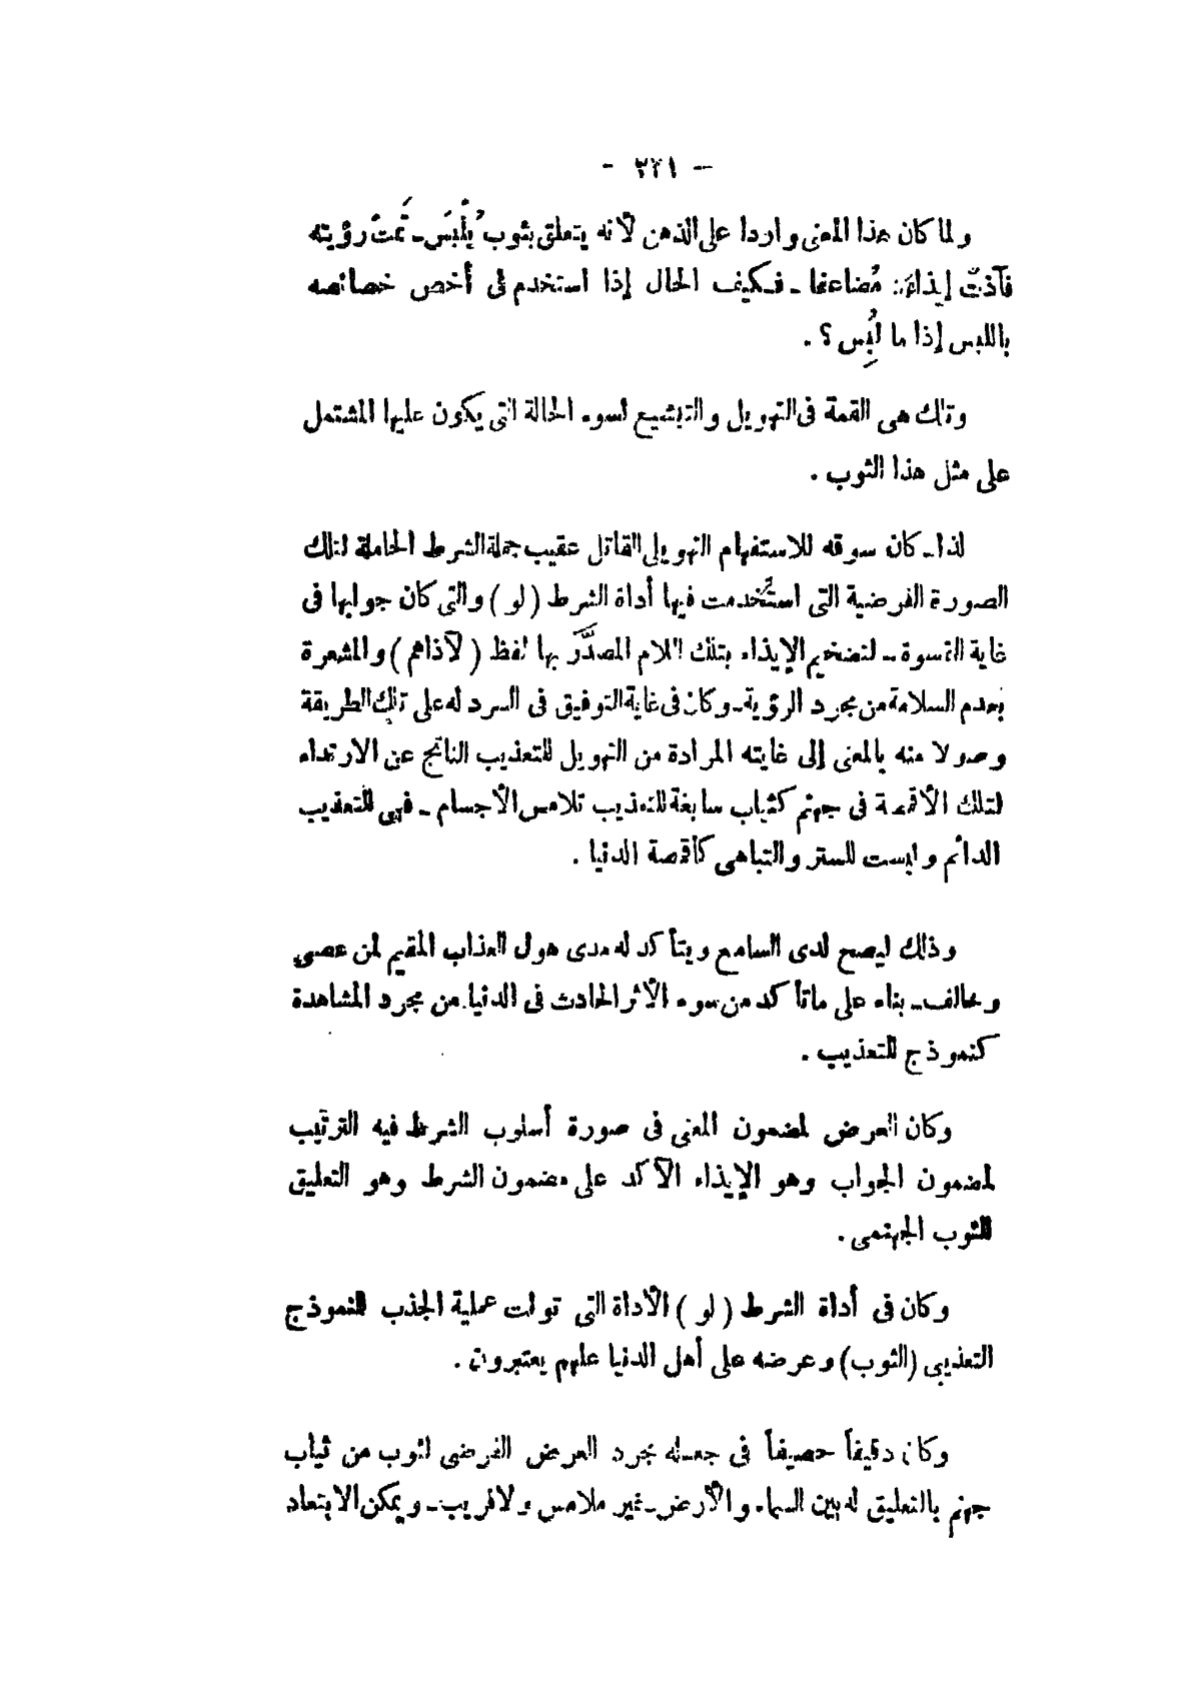 - ٣٢١ -
ولما كان هذا المعنى واردا على الذهن لأنه يتعلق بثوب يُلْبَس ـ تَمتْ رؤيته
فآذتْ إيذاءً مُضاعفا ـ فكيف الحال إذا استخدم فى أخص خصائصه
باللبس إذا ما لُبِس ؟ .
وتلك هى القمة فى التهويل والتبشيع لسوء الحالة التى يكون عليها المشتمل
على مثل هذا الثوب .
لذا ـ كان سوقه للاستفهام التهويلى القاتل عقيب جملة الشرط الحاملة لتلك
الصورة الفرضية التى استُخدمت فيها أداة الشرط ( لو ) والتى كان جوابها فى
غاية القسوة ـ لتضخيم الإيذاء بتلك اللام المصدَّرَ بها لفظ ( لآذاهم ) والمشعرة
بعدم السلامة من مجرد الرؤية ـ وكان فى غاية التوفيق فى السرد له على تلك الطريقة
وصولا منه بالمعنى إلى غايته المرادة من التهويل للتعذيب الناتج عن الارتداء
لتلك الأقمصة فى جهنم كثياب سابغة للتعذيب تلامس الأجسام ـ فهى للتعذيب
الدائم وليست للستر والتباهى كأقمصة الدنيا .
وذلك ليصح لدى السامع ويتأكد له مدى هول العذاب المقيم لمن عصى
وخالف ـ بناء على ماتأكد من سوء الأثر الحادث فى الدنيا من مجرد المشاهدة
كنموذج للتعذيب .
وكان العرض لمضمون المعنى فى صورة أسلوب الشرط فيه الترتيب
لمضمون الجواب وهو الإيذاء الآكد على مضمون الشرط وهو التعليق
للثوب الجهنمى .
وكان فى أداة الشرط ( لو ) الأداة التى تولت عملية الجذب للنموذج
التعذيبى (الثوب) وعرضه على أهل الدنيا علهم يعتبرون .
وكان دقيقاً حصيفاً فى جعله مجرد العرض الفرضى لثوب من ثياب
جهنم بالتعليق له بين السماء والأرض ـ غير ملامس ولا قريب ـ ويمكن الابتعاد